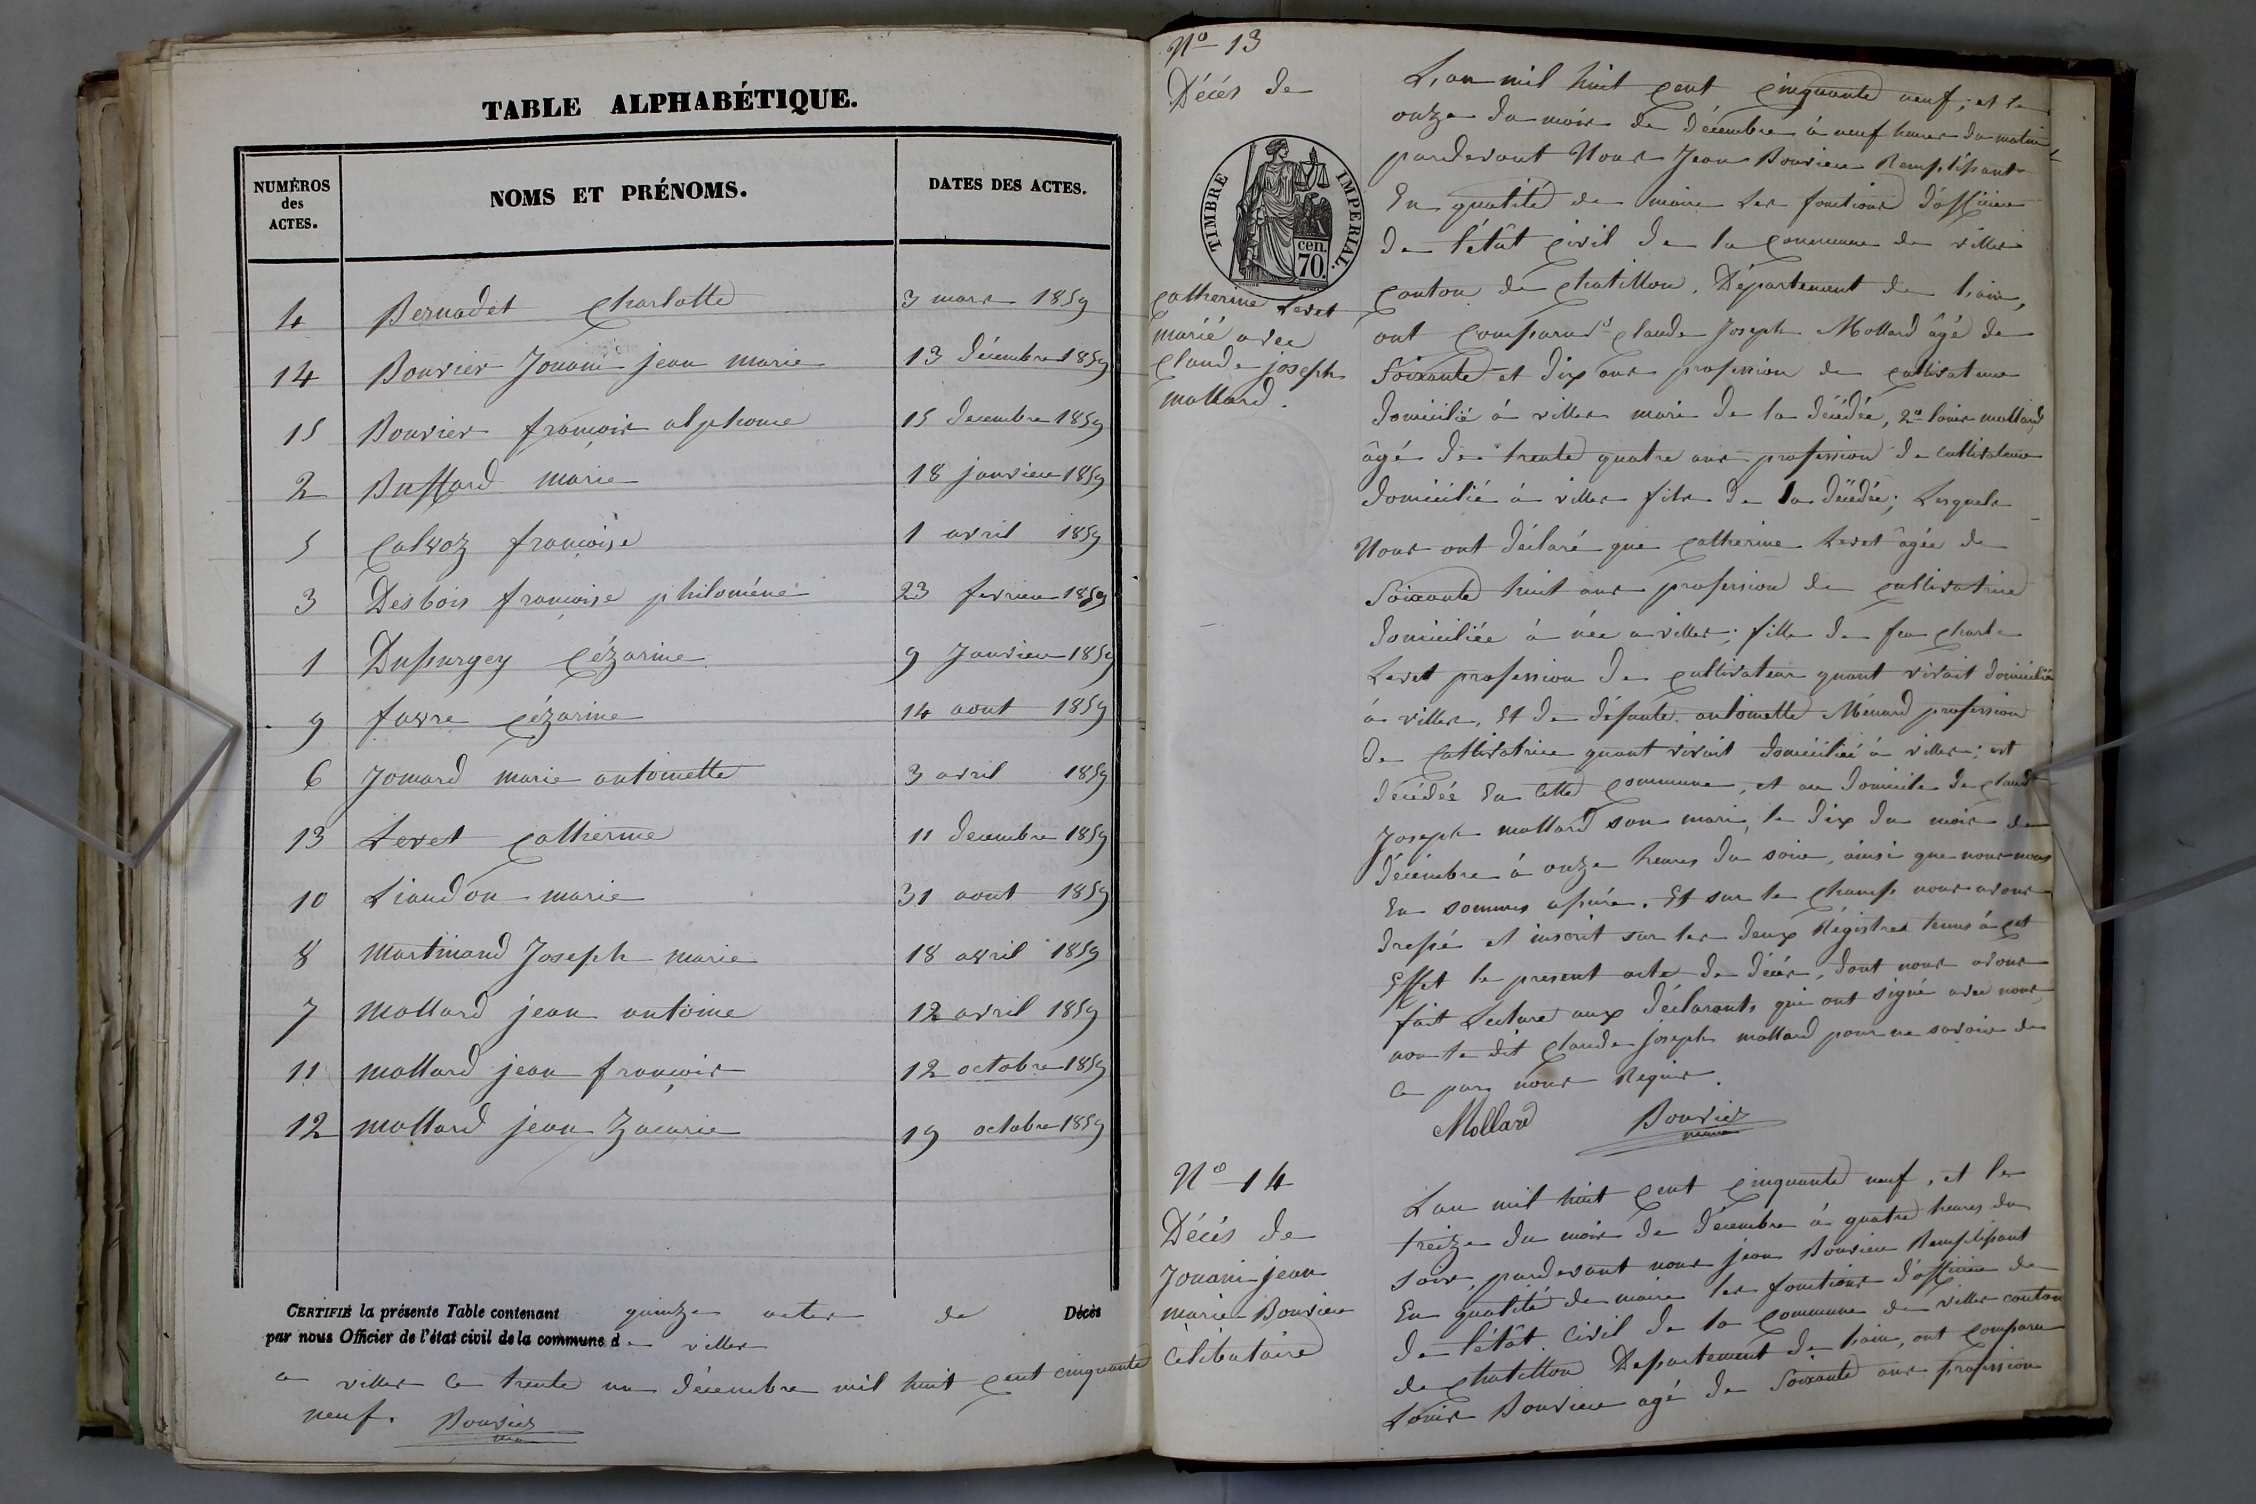 TABLE ALPHABÉTIQUE.
NUMÉROS des ACTES.
NOMS ET PRÉNOMS.
DATES DES ACTES.
4 Bernadet Charlotte 3 mars 1859
14 Bouvier Jouani jean marie 13 décembre 1859
15 Bouvier françois alphonse 15 decembre 1859
2 Buffard marie 18 janvier 1859
5 Calvoz françoise 1 avril 1859
3 Desbois françoise philoméne 23 fevrier 1859
1 Dupurgey Cézarine 9 Janvier 1859
9 favre Cézarine 14 aout 1859
6 Jomard marie antoinette 3 avril 1859
13 Levet Catherine 11 decembre 1859
10 Liaudon marie 31 aout 1859
8 Martinand Joseph marie 18 avril 1859
7 Mollard jean antoine 12 avril 1859
11 Mollard jean françois 12 octobre 1859
12 Mollard jean Zacarie 19 octobre 1859
CERTIFIÉ la présente Table contenant quinze actes de Décès
par nous Officier de l'état civil de la commune de villes
a villes le trente un décembre mil huit cent cinquante
neuf. Bouvier
Nº 13
Décés de
TIMBRE IMPERIAL.
70 cen.
Catherine Levet
marié avec
Claude joseph
mollard.
L'an mil huit cent cinquante neuf, et le
onze du mois de Décembre à neuf heures du matin
pardevant Nous Jean Bouvier Remplissant
En qualité de maire Les fonctions d'officier
de l'étât Civil de la Commune de villes
Canton de Chatillon. Département de l'ain,
ont Comparu 1º Claude Joseph Mollard âgé de
Soixante et dix ans profession de Cultivateur
domicilié à villes mari de la décédée, 2º louis mollard
âgé de trente quatre ans profession de Cultivateur
domicilié à villes fils de la décédée; Lesquels
Nous ont déclaré que Catherine Levet âgée de
Soixante huit ans profession de Cultivatrice
domiciliée à née a villes; fille de feu Charle
Levet profession de Cultivateur quant vivait domicilié
à villes, Et de défunte antoinette Ménard profession
de Cultivatrice quant vivait domiciliée à villes: est
décédée En Cette Commune, et au domicile de Claude
Joseph mollard son mari, le dix du mois de
décembre à onze heures du soir, ainsi que nous nous
En sommes assuré. Et sur le Champ nous avons
dressé et inscrit sur les deux Régistres tenus à cet
Effet le present acte de décés, dont nous avons
fait Lecture aux déclarants qui ont signé avec nous,
non le dit Claude joseph mollard pour ne savoir de
ce par nous Requis.
Mollard Bouvier
maire
Nº 14
Décés de
Jouani jean
marie Bouvier
Célibataire
L'an mil huit Cent Cinquante neuf, et le
treize du mois de décembre à quatre heures du
soir, pardevant nous jean Bouvier Remplissant
En qualité de maire les fonctions d'officier de
de l'étât Civil de la Commune de villes canton
de Chatillon Département de l'ain, ont Comparu
Louis Bouvier agé de Soixante ans profession